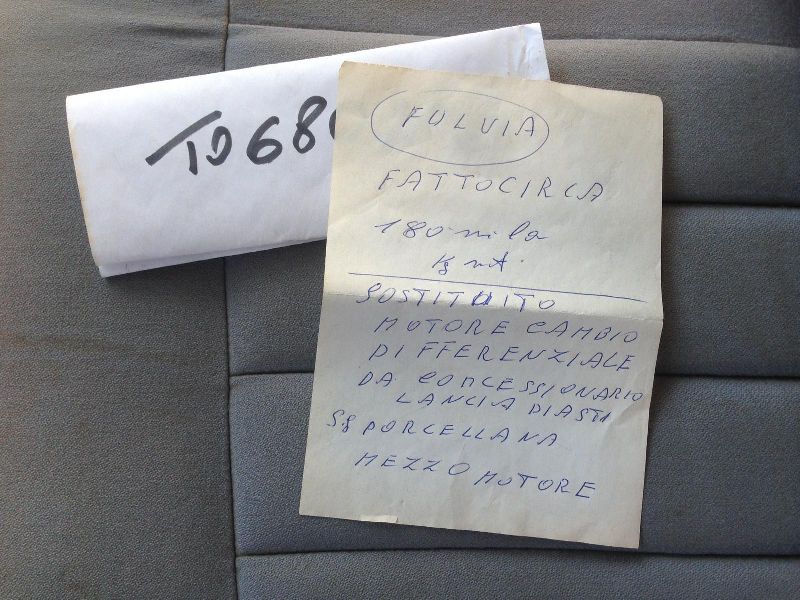 TO 680
FULVIA
FATTO CIRCA
180 mila
SOSTITUITO
MOTORE CAMBIO
DIFFERENZIALE
DA CONCESSIONARIO
LANCIA DI ASTI
PORCELLANA
MEZZO MOTORE